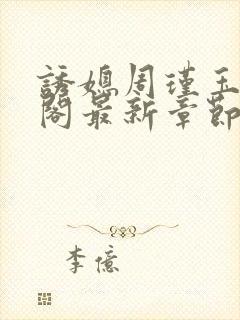 誘媳周瑾玉
閣最新章節
李億